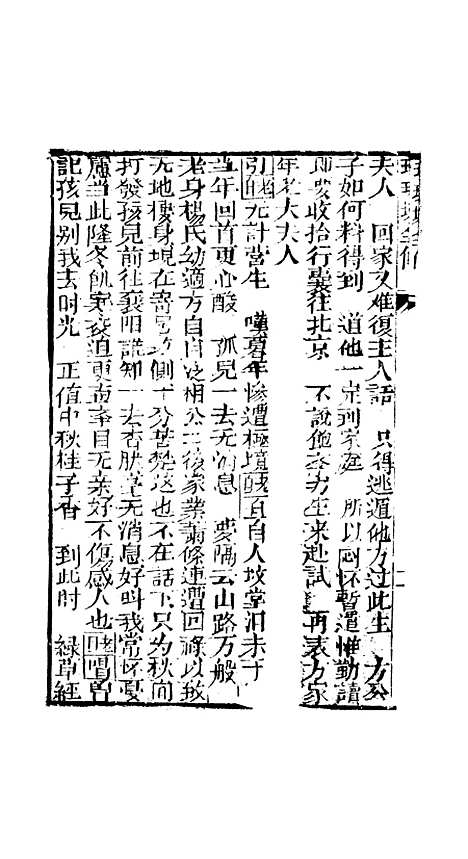 夫人 回家又难復主人話 只得逃遁他方过此生 方公
子如何料得到 道他一定到家庭 所以寬怀暫遣惟勤讀
即戔收拾行囊往北京 不說他本方生来赴試 再表方家
年老大夫人
引 无計营生 嘆暮年慘遭極境 白 自人坟堂泪未寸
当年回首更心酸 孤兒一去无消息 夢隔云山路万般
老身楊氏幼適方自自從相公亡後家業蕭條連遭回祿以致
无地棲身現在寄居坟側十分苦楚这也不在話下只为秋向
打發孩兒前往襄阳誰知一去杳然毫无消息好叫我常怀憂
慮当此隆冬飢寒衰迫更兼举目无亲好不伤感人也 唱曾
記孩兒别我去时光 正值中秋桂子香 到此时 緑草経